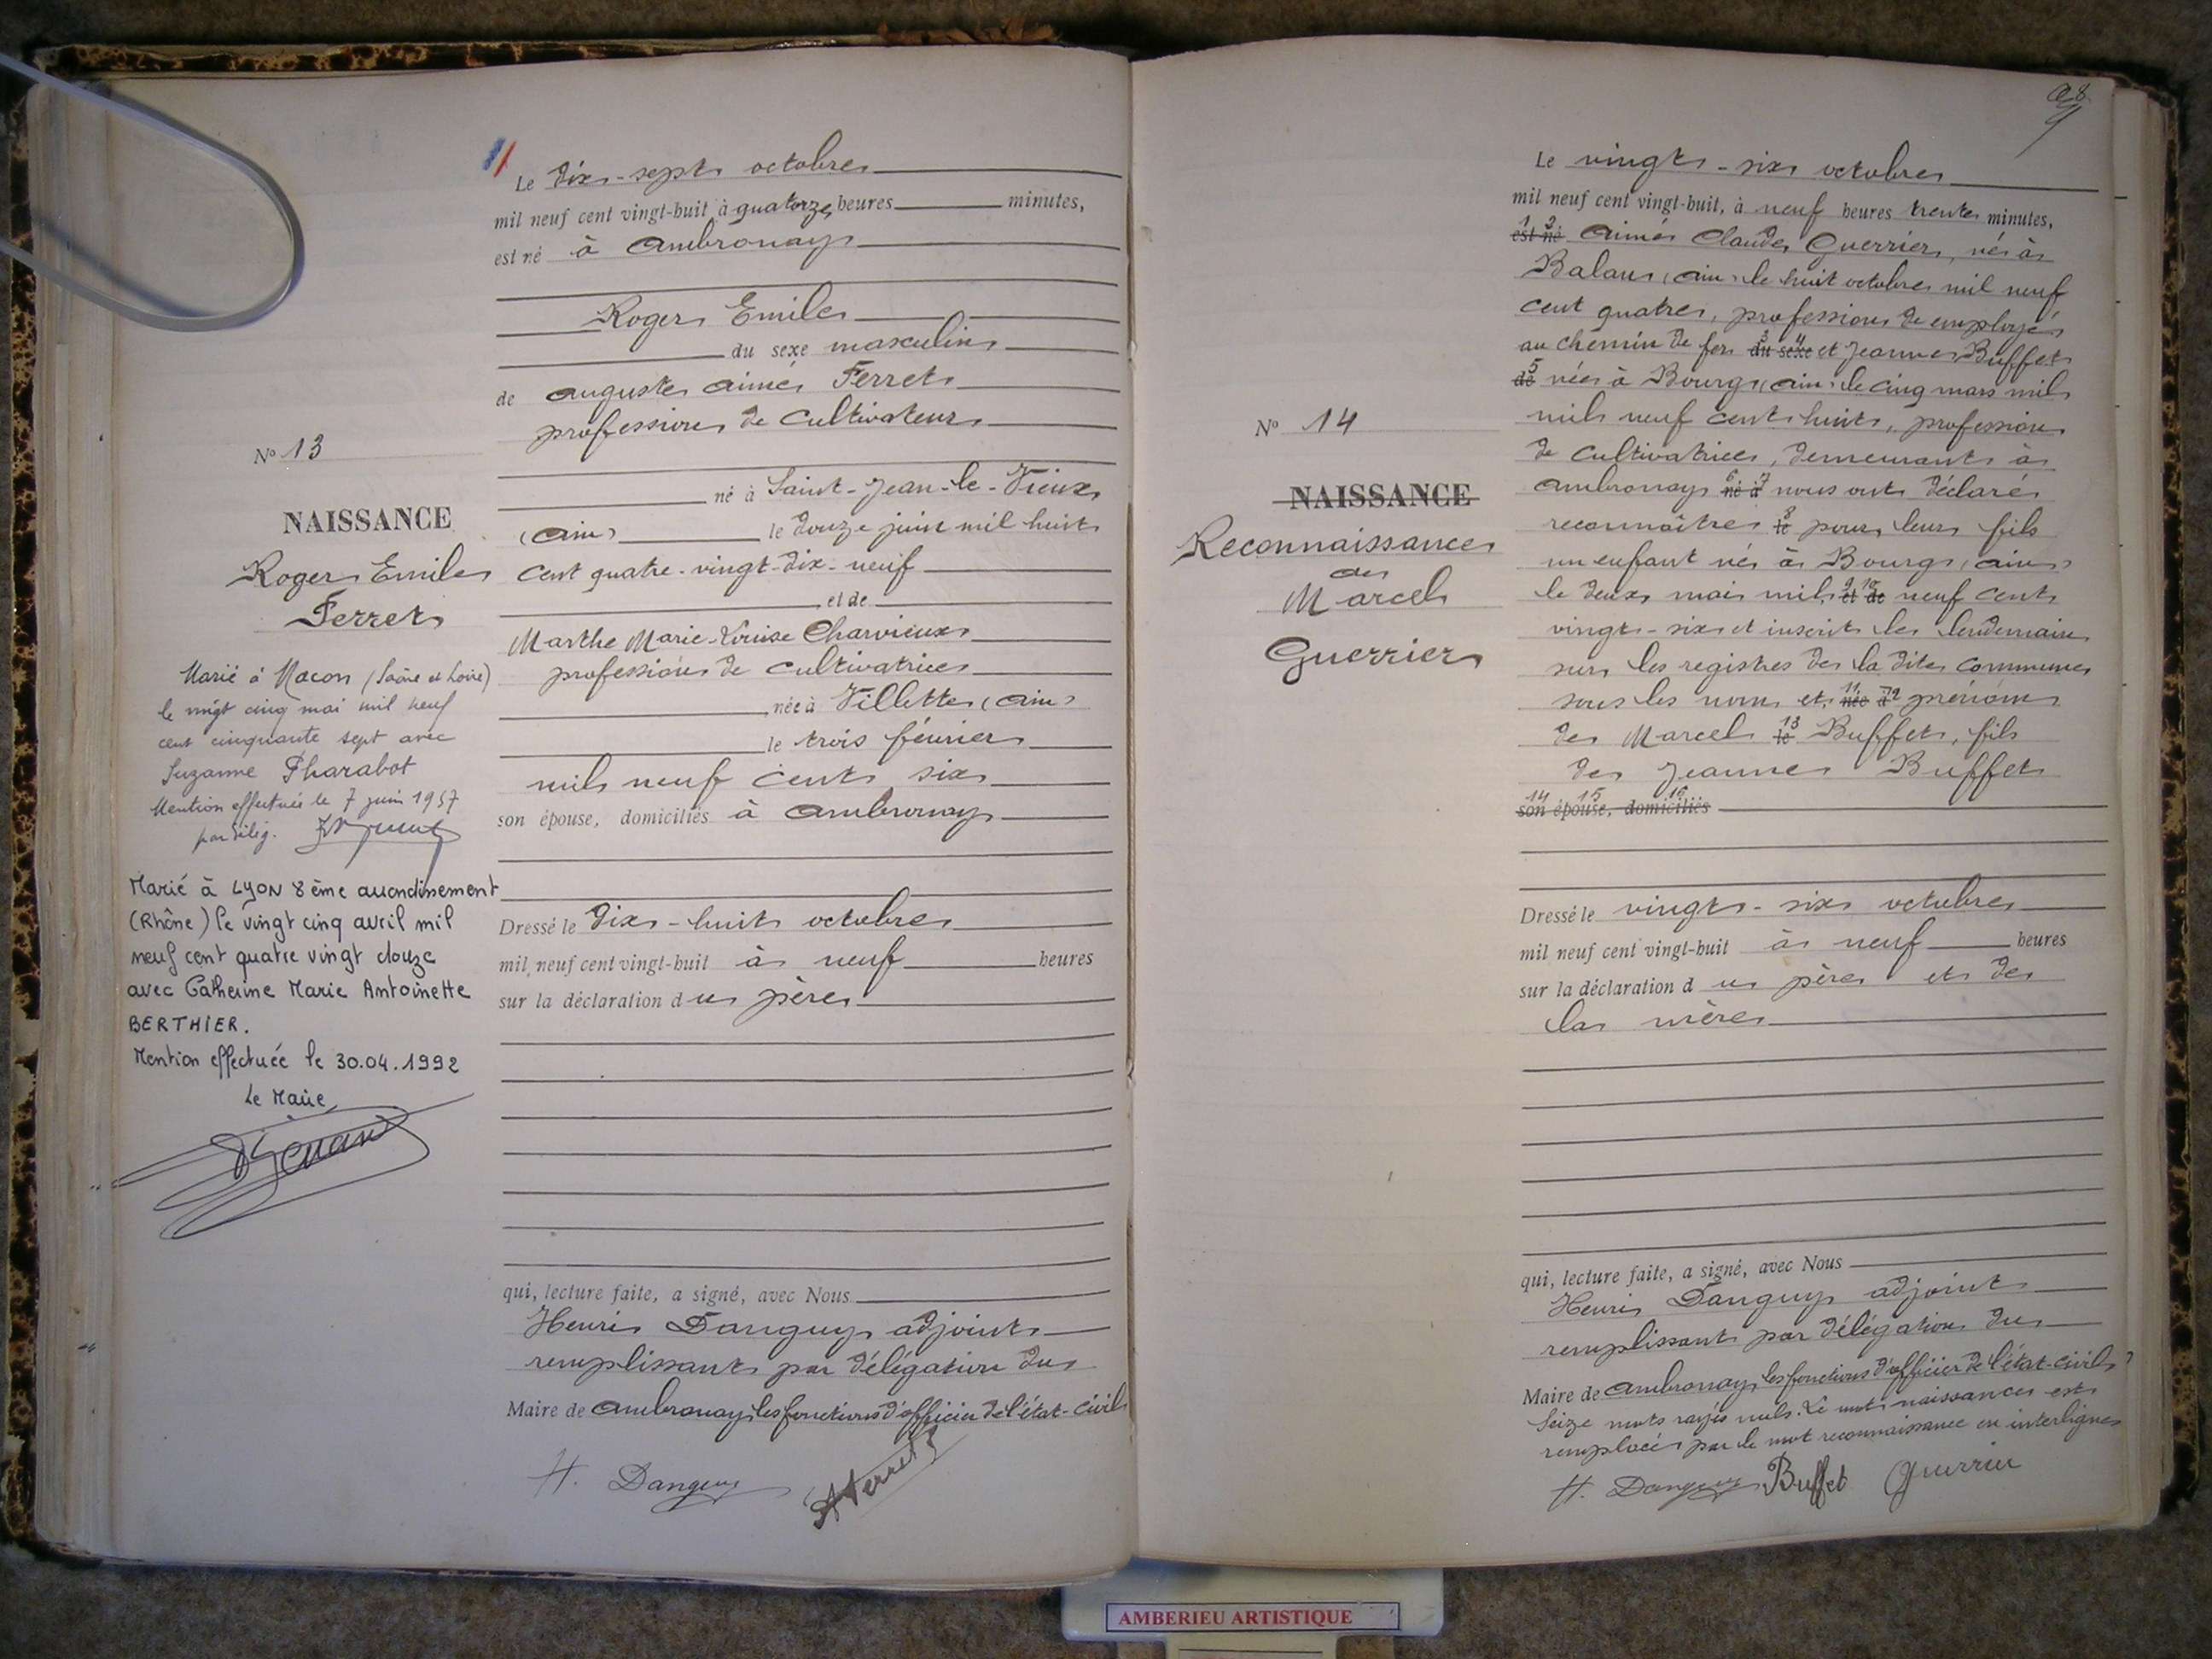 Le dix-sept octobre
mil neuf cent vingt-huit à quatorze heures minutes,
est né à Ambronay
Roger Emile
du sexe masculin
de Auguste Aimé Ferret
profession de cultivateur
né à Saint-Jean-le-Vieux
(Ain) le douze juin mil huit
cent quatre-vingt-dix-neuf
et de
Marthe Marie-Louise Charvieux
profession de cultivatrice
née à Villette (Ain)
le trois février
mil neuf cent six
son épouse, domiciliés à Ambronay
Dressé le dix-huit octobre
mil neuf cent vingt-huit à neuf heures
sur la déclaration du père
qui, lecture faite, a signé, avec Nous
Henri Danguy adjoint
remplissant par délégation du
Maire de Ambronay les fonctions d'officier de l'état-civil
H. Danguy AFerret
No 13
NAISSANCE
Roger Emile
Ferret
Marié à Macon (Saône et Loire)
le vingt cinq mai mil neuf
cent cinquante sept avec
Suzanne Pharabot
Mention effectuée le 7 juin 1957
par délég.
Marié à LYON 8ème arrondissement
(Rhône) le vingt cinq avril mil
neuf cent quatre vingt douze
avec Catherine Marie Antoinette
BERTHIER.
Mention effectuée le 30.04.1992
Le Maire
No 14
NAISSANCE
Reconnaissance
de
Marcel
Guerrier
Le vingt-six octobre
mil neuf cent vingt-huit, à neuf heures trente minutes,
1 2
est né Aimé Claude Guerrier, né à
Balan (Ain) le huit octobre mil neuf
cent quatre, profession de employé
au chemin de fer 3 4 du sexe et Jeanne Buffet
5 de née à Bourg (Ain) le cinq mars mil
mil neuf cent huit, profession
de cultivatrice, demeurant à
Ambronay 6 7 né à nous ont déclaré
reconnaître 8 le pour leur fils
un enfant né à Bourg (Ain)
le deux mai mil 9 10 et de neuf cent
vingt-six et inscrit le lendemain
sur les registres de la dite commune
sous les nom et 11 12 née à prénom
de Marcel 13 le Buffet, fils
de Jeanne Buffet
14 15 16
son épouse, domiciliés
Dressé le vingt-six octobre
mil neuf cent vingt-huit à neuf heures
sur la déclaration du père et de
la mère
qui, lecture faite, a signé, avec Nous
Henri Danguy adjoint
remplissant par délégation du
Maire de Ambronay les fonctions d'officier de l'état-civil
Seize mots rayés nuls. Le mot naissance est
remplacé par le mot reconnaissance en interligne
H. Danguy Buffet Guerrier
AMBERIEU ARTISTIQUE